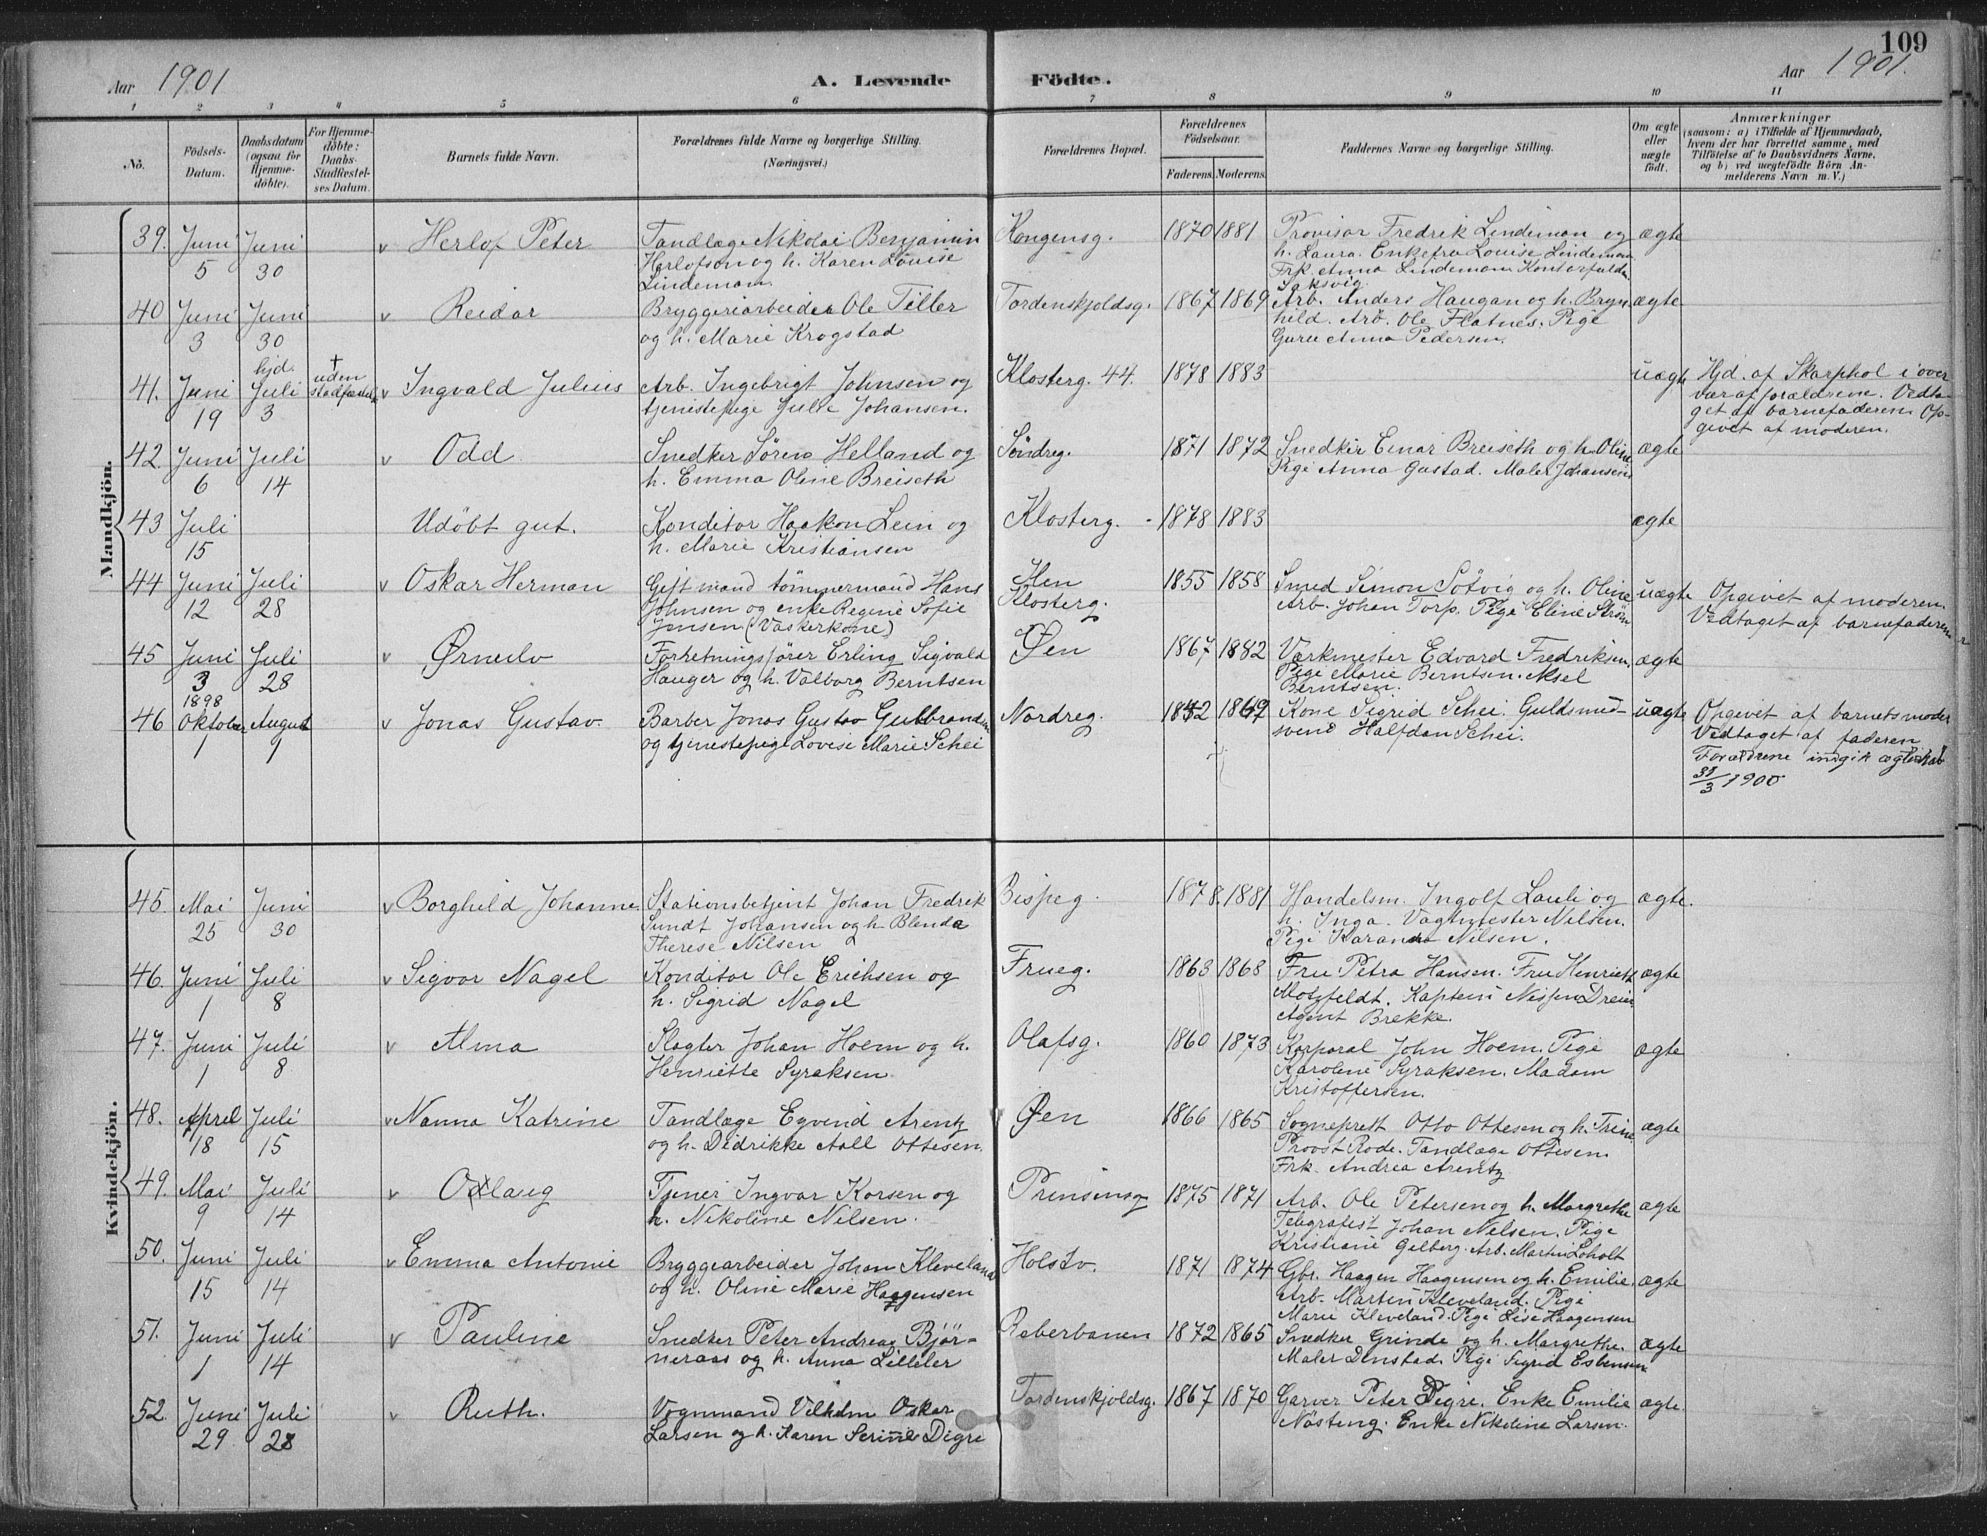 109
Aar 1901
A. Levende Födte.
Aar 1901.
1 2 3 4 5 6 7 8 9 10 11
No.
Födsels-
Datum.
Daabsdatum
(ogsaa for
Hjemme-
döbte).
For Hjemme-
döbte:
Daabs-
Stadfæstel-
ses Datum.
Barnets fulde Navn.
Forældrenes fulde Navne og borgerlige Stilling.
(Næringsvei.)
Forældrenes Bopæl.
Forældrenes
Födselsaar.
Faderens. Moderens.
Faddernes Navne og borgerlige Stilling.
Om ægte
eller
uægte
födt.
Anmærkninger
(saasom: a) i Tilfælde af Hjemmedaab,
hvem der har forrettet samme, med
Tilföielse af to Daabsvidners Navne,
og b) ved uægtefödte Börn An-
melderens Navn m. V.)
Mandkjön.
39. Juni 5 Juni 30 v Herlof Peter
Tandlæge Nikolai Benjamin
Herlofson og h. Karen Lovise
Lindeman
Kongensg. 1870 1881
Provisor Fredrik Lindeman og
h. Laura. Enkefru Louise Lindeman
Frk. Anna Lindeman
Saksvig.
ægte
40 Juni 3 Juni 30 v Reidar
Bryggeriarbeider Ole Tiller
og h. Marie Krogstad
Tordenskjoldsg. 1867 1869
Arb. Anders Haugan og h. Bryn
hild. Arb. Ole Flatnes. Pige
Guru Anna Pedersen.
ægte
41. Juni 19 hjd. Juli 3 + uden stadfæstelse v Ingvald Julius
Arb. Ingebrigt Johnsen og
tjenestepige Julie Johansen.
Klosterg. 44. 1878 1883
uægte
Hjd. af Skarphol i over
vær af forældrene. Vedta-
get af barnefaderen. Op-
givet af moderen.
42. Juni 6 Juli 14 v Odd
Snedker Sören Helland og
h. Emma Oline Breiseth
Söndreg. 1871 1872
Snedker Einar Breiseth og h. Oline
Pige Anna Gustad. Maler Johansen
ægte
43 Juli 15 Udöbt gut.
Konditor Haakon Lein og
h. Marie Kristiansen
Klosterg. 1878 1883
ægte
44 Juni 12 Juli 28 v Oskar Herman
Gift mand tömmermand Hans
Johnsen og enke Regine Sofie
Jensen (Vaskerkone)
Ilen
Klosterg.
1855 1858
Smed Simon Sötvig og h. Oline
Arb. Johan Torp. Pige Eline Ström
uægte
Opgivet af moderen.
Vedtaget af barnefaderen
45 Juni 3 Juli 28 v Ørnulv
Forretningsförer Erling Sigvald
Hauger og h. Valborg Berntsen
Øen 1867 1882
Værkmester Edvard Fredriksen.
Pige Marie Berntsen. Aksel
Berntsen.
ægte
46 1898 Oktober 1 August 9 v Jonas Gustav
Barber Jonas Gustav Gulbrandsen
og tjenestepige Lovise Marie Schei
Nordreg. 1869
Kone Sigrid Schei. Guldsmed-
svend Halfdan Schei.
uægte
Opgivet af barnets moder
Vedtaget af faderen
Forældrene indgik ægteskab
31/3 1900
Kvindekjön.
45. Mai 25 Juni 30 v Borghild Johanne
Stationsbetjent Johan Fredrik
Sundt Johansen og h. Blenda
Therese Nilsen
Bispeg. 1878. 1881
Handelsm. Ingolf Lauli og
h. Inga. Vagtmester Nilsen.
Pige Karanna Nilsen.
ægte.
46. Juni 1 Juli 8 v Sigvor Nagel
Konditor Ole Erichsen og
h. Sigrid Nagel
Frueg. 1863 1868
Fru Petra Hansen. Fru Henriette
Motzfeldt. Kaptein Nissen Dreier
Agent Brekke.
ægte
47. Juni 1 Juli 8 v Alma
Slagter Johan Hoem og h.
Henriette Syraksen.
Olafsg. 1860 1873
Korporal John Hoem. Pige
Karoline Syraksen. Madam
Kristoffersen.
ægte
48. April 18 Juli 15 v Nanna Katrine
Tandlæge Eyvind Arentz
og h. Didrikke Aall Ottesen.
Øen 1866 1865
Sogneprest Otto Ottesen og h. Trine
Provst Rode. Tandlæge Ottesen.
Frk. Andrea Arentz
ægte
49. Mai 9 Juli 14 v Oxlaug
Tjener Ingvar Korsen og
h. Nikoline Nilsen.
Prinsensg 1875 1871
Arb. Ole Petersen og h. Margrethe
Telegrafist Johan Nilsen. Pige
Kristiane Gelberg. Arb. Martin Loholt
ægte
50. Juni 15 Juli 14 v Emma Antonie
Bryggearbeider Johan Kleveland
og h. Oline Marie Haagensen
Holstv. 1871 1874
Gbr. Haagen Haagensen og h. Emilie.
Arb. Martin Kleveland. Pige
Marie Kleveland. Pige Lise Haagensen
ægte
51. Juni 1 Juli 14 v Pauline
Snedker Peter Andreas Björ-
neraas og h. Anna Lilleler
Reberbanen 1872 1865
Snedker Grinde og h. Margrethe.
Maler Denstad. Pige Sigrid Esbensen
ægte
52. Juni 29 Juli 28 v Ruth.
Vognmand Vilhelm Oskar
Larsen og h. Karen Serine Digre
Tordenskjoldsg. 1867 1870
Garver Peter Digre. Enke Emilie
Nösting. Enke Nikoline Larsen.
ægte.